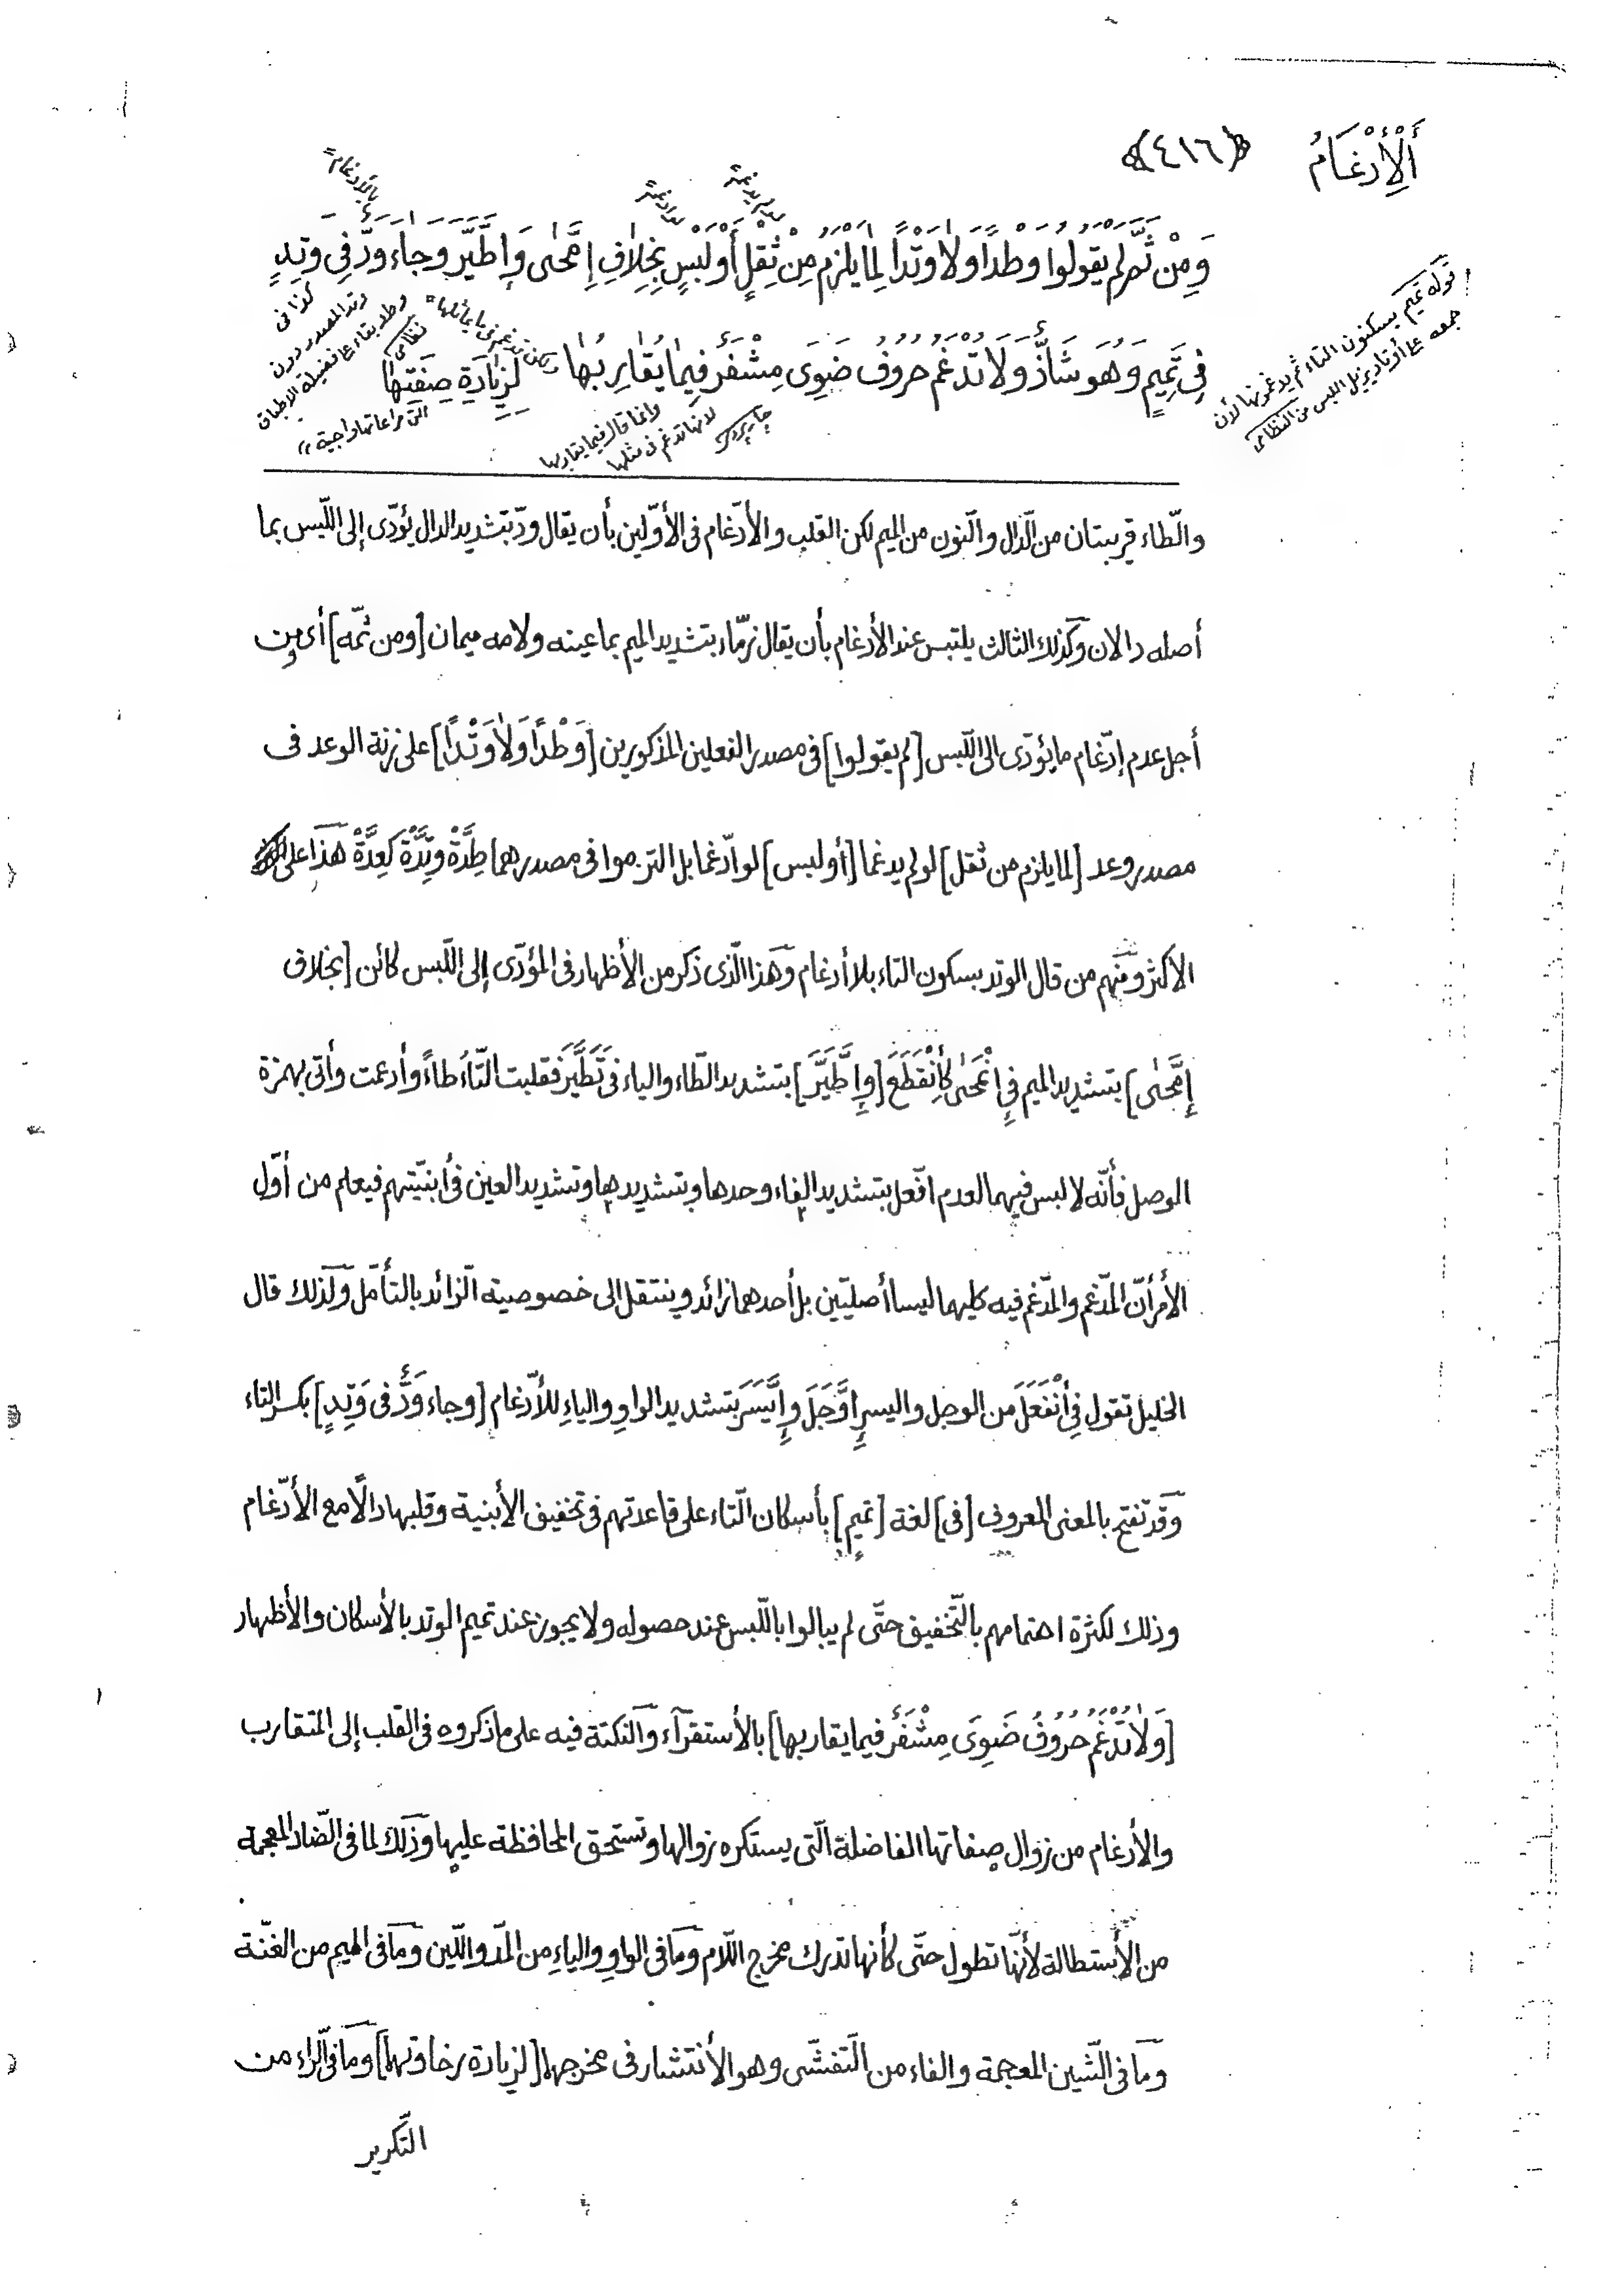 أَلْأِدْغَامُ ﴿٤١٦﴾
بالأدغام
وَمِنْ ثَمَّ لَمْ يَقُولُوا وَطْدًا وَلاٰ وَتْدًا لِمٰا يَلْزَمُ مِنْ ثِقْلٍ أَوْ لَبْسٍ بِخِلاٰفِ إِمَّحىٰ وَإِطَّيَّرَ وَجٰاءَ وَدٌّ فِي وَتِدٍ
فِي تَمِيمٍ وَهُوَ شَاذٌّ وَلاٰ تُدْغَمُ حُرُوفُ ضَوِىَ مِشْفَرٌ فِيمٰا يُقٰارِبُهٰا لِزِيٰادَةِ صِفَتِهٰا
قوله تميم يسكنون التاء ثم يدغمونها لأن
جمعه على أوتاد يزيل اللبس من النظامى
وانما قال فيما يقاربها
لانها تدغم فى مثلها
والطّاء قريبتان من الدّال والنّون من الميم لكن القلب والأدّغام فى الأوّلين بأن يقال ودّ بتشديد الدال يؤدّى إلى اللّبس بما
أصله دالان وكذلك الثالث يلتبس عند الأدغام بأن يقال زمّاء بتشديد الميم بما عينه ولامه ميمان [ومن ثمّه] أى ومن
أجل عدم إدّغام ما يؤدّى الى اللّبس [لم يقولوا] فى مصدر الفعلين المذكورين [وَطْدًا وَلاٰ وَتْدًا] على زنة الوعد فى
مصدر وعد [لما يلزم من ثقل] لو لم يدغما [أو لبس] لو ادّغما بل التزموا فى مصدرهما طِدَةً وتِدَةً كَعِدَةً هذا على
الأكثر ومنهم من قال الوتد بسكون التاء بلا أدغام وهذا الّذى ذكر من الأظهار فى المؤدّى إلى اللّبس كائن [بخلاف
إِمَّحىٰ] بتشديد الميم فى إِنْمَحىٰ كَأِنْقَطَعَ [وإِطَّيَّرَ] بتشديد الطّاء والياء فى تَطَيَّرَ فقلبت التّاءُ طاءً وأدغمت وأتى بهمزة
الوصل فأنّه لا لبس فيهما لعدم افّعل بتشديد الفاء وحدها وبتشديدها وتشديد العين فى أبنيتهم فيعلم من أوّل
الأمر أنّ المدّغم والمدّغم فيه كليهما ليسا أصليّين بل أحدهما زائد وينتقل الى خصوصية الزّائد بالتأمّل ولذلك قال
الخليل تقول فى أِنْفَعَلَ من الوجل واليسر إِوَّجَلَ وإِيَّسَرَ بتشديد الواوِ والياءِ للأدّغام [وجاء وَدٌّ فى وَتِدٍ] بكسر التاء
وقد تفتح بالمعنى المعروف [فى] لغة [تميمٍ] بأسكان التّاء على قاعدتهم فى تخفيف الأبنية وقلبها دالًا مع الأدّغام
وذلك لكثرة اهتمامهم بالتّخفيف حتّى لم يبالوا باللّبس عند حصوله ولا يجوز عند تميم الوتد بالأسكان والأظهار
[وَلاٰ تُدْغَمُ حُرُوفُ ضَوِىَ مِشْفَرٌ فيما يقاربها] بالأستقرآء والنكتة فيه على ما ذكروه فى القلب إلى المتقارب
والأدغام من زوال صفاتها الفاضلة الّتى يستكره زوالها وتستحق المحافظة عليها وذلك لما فى الضّاد المعجمة
من الأستطالة لأنّها تطول حتّى كأنها تدرك مخرج اللّام وما فى الواوِ والياءِ من المدّ واللّين وما فى الميم من الغنّة
وما فى الشّين المعجمة والفاء من التّفشّى وهو الأنتشار فى مخرجها [لزيادة رخاوتهما] وما فى الرّاء من
التّكرير